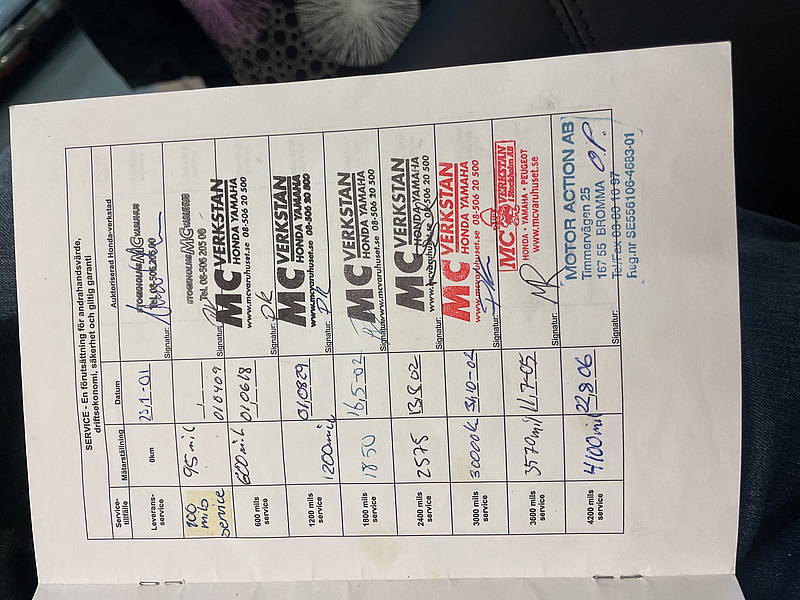 SERVICE - En förutsättning för andrahandsvärde,
driftsekonomi, säkerhet och giltig garanti
Service-
tillfälle
Mätarställning
Datum
Auktoriserad Honda-verkstad
Leverans-
service
0km
23,1-01
STOCKHOLMS MC
Tel. 08-506 205 00
Signatur:
100
mils
service
95 mil
010409
STOCKHOLMS MC
Tel. 08-506 205 00
Signatur:
600 mils
service
600 mil
01,0618
MC VERKSTAN
HONDA YAMAHA
www.mcvaruhuset.se 08-506 20 500
DK
1200 mils
service
1200 mil
01,0829
MC VERKSTAN
HONDA YAMAHA
www.mcvaruhuset.se 08-506 20 500
Signatur:
1800 mils
service
1850
16,5-02
MC VERKSTAN
HONDA YAMAHA
www.mcvaruhuset.se 08-506 20 500
Signatur:
2400 mils
service
2575
13,8 02
MC VERKSTAN
HONDA YAMAHA
www.mcvaruhuset.se 08-506 20 500
Signatur:
3000 mils
service
30000 K
MC VERKSTAN
HONDA YAMAHA
www.mcvaruhuset.se 08-506 20 500
Signatur:
3600 mils
service
3570 mil
11,7-05
MC VERKSTAN
i Stockholm AB
HONDA • YAMAHA • PEUGEOT
www.mcvaruhuset.se
MR
Signatur:
4200 mils
service
4100 mil
22,8 06
MOTOR ACTION AB
Timmervägen 25
167 55 BROMMA O.P.
Tel/Fax 08-83 10 97
Reg.nr SE556106-4683-01
Signatur: